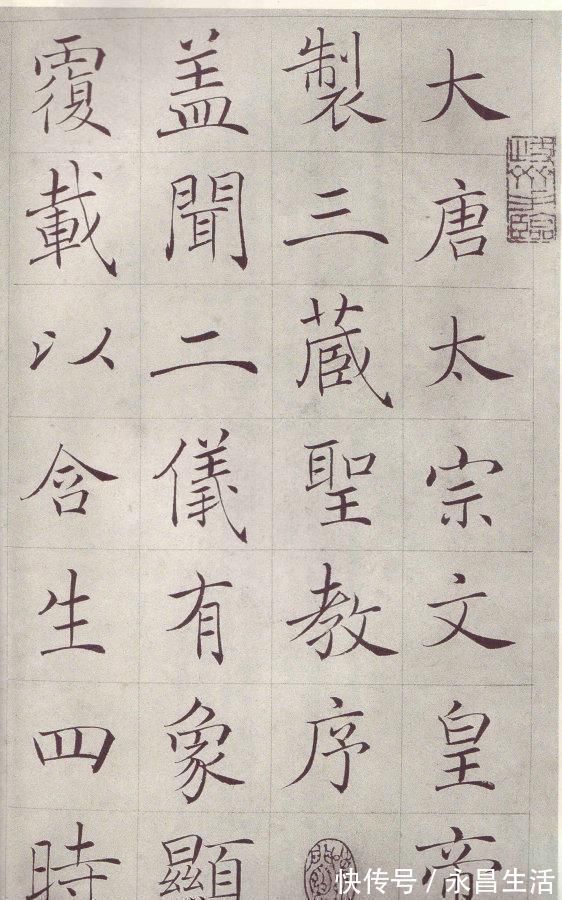 大唐太宗文皇帝
製三藏聖教序
盖聞二儀有象顯
覆載以含生四時
快传号/永昌生活